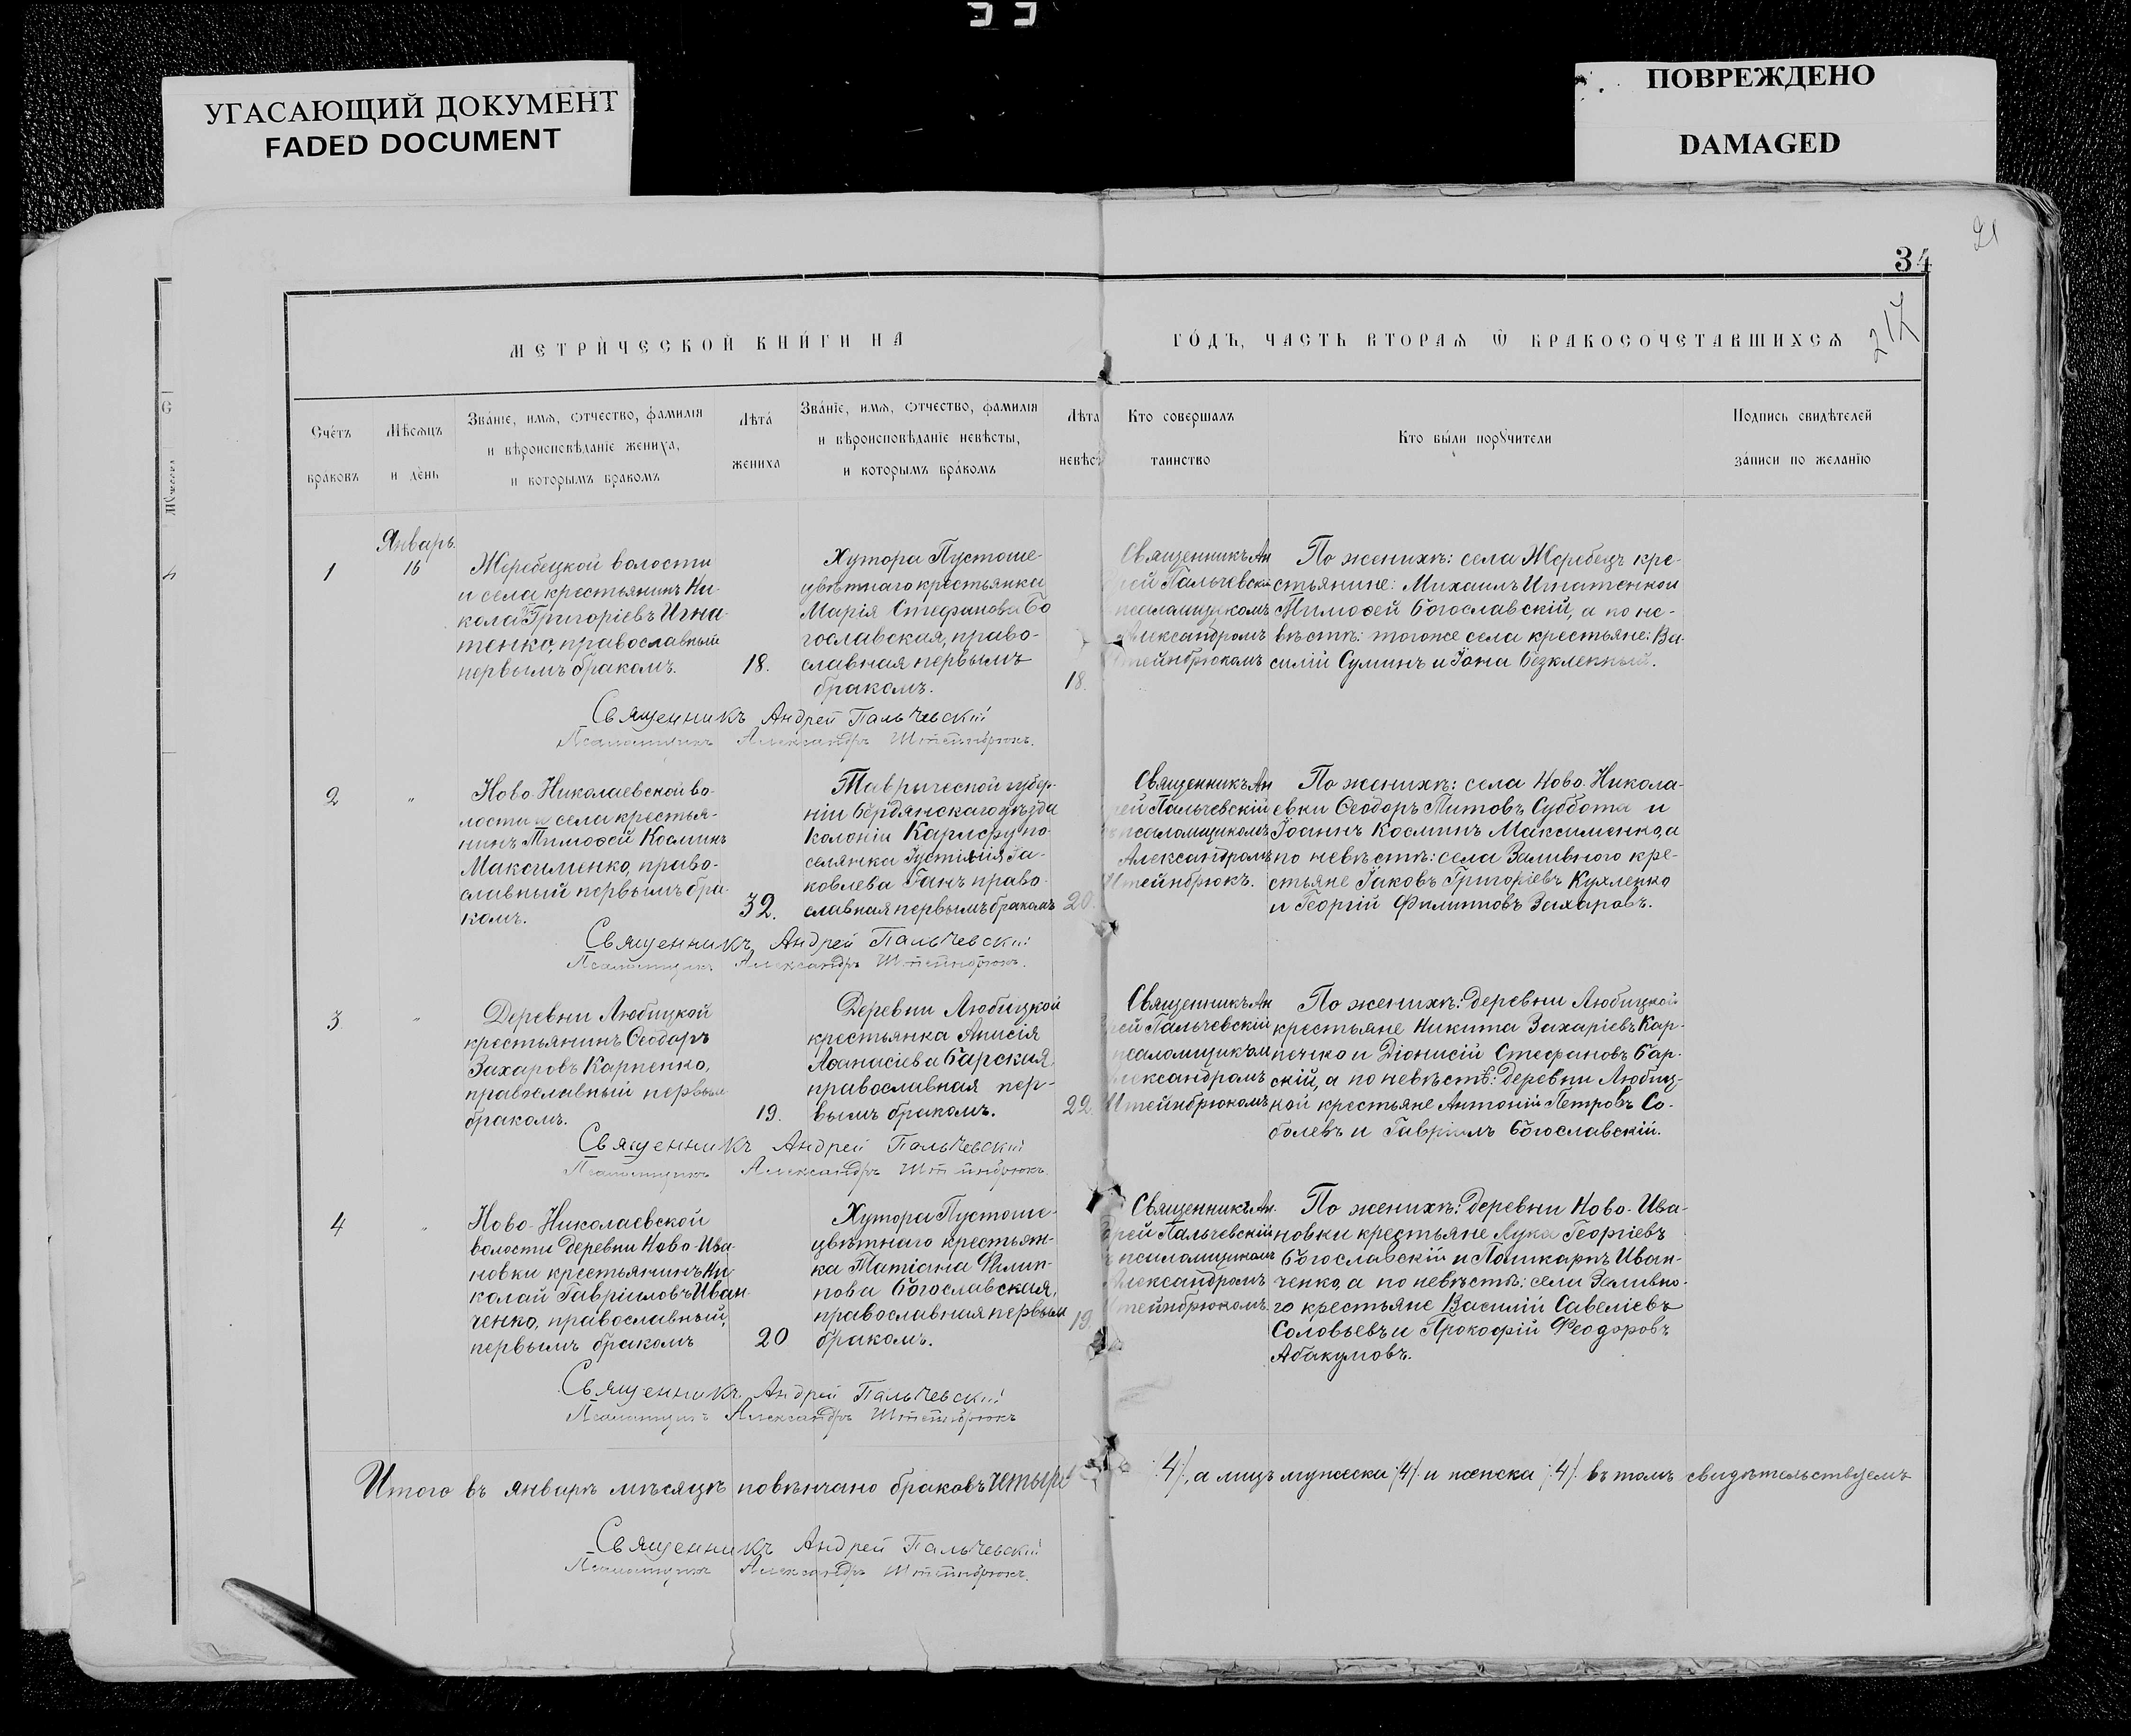 УГАСАЮЩИЙ ДОКУМЕНТ
FADED DOCUMENT
ПОВРЕЖДЕНО
DAMAGED
21
34
217
МЕТРИ́ЧЕСКОЙ КНИ́ГИ НА
ГО́ДЪ, ЧАСТЬ ВТОРАѦ Ѡ БРАКОСОЧЕТАВШИХСѦ
Счётъ
бра́ковъ
Мѣсѧцъ
и де́нь
Зва́нїе, имѧ, отчество, фамилїя
и вѣроисповѣданїе жениха,
и которымъ бракомъ
Лѣта́
жениха
Зва́нїе, имѧ, отчество, фамилїя
и вѣроисповѣданїе невѣсты,
и которымъ бра́комъ
Лѣта
невѣс
Кто совершалъ
таинство
Кто бы́ли порꙋчители
Подпись свидѣтелей
за́писи по желанїю
1
Январь.
16
Жеребецкой волости
и села крестьянинъ Ни-
кола Григоріевъ Игна-
тенко, православный
первымъ бракомъ.
18.
Хутора Пустоше-
цвѣтнаго крестьянка
Марія Стефанова Бо
гославская, право-
славная первымъ
бракомъ.
18.
Священникъ Ан
рей Пальчевскій
псаломщикомъ
Александромъ
Штейнбрюкомъ
По женихѣ: села Жеребецъ кре-
стьянине: Михаилъ Игнатенкои
Тимоѳей Богославскій, а по не-
вѣстѣ: тогоже села крестьяне: Ва-
силій Суминъ и Іона Безкленный.
Священникъ Андрей Пальчевскій
Псаломщикъ Александръ Штейнбрюкъ.
2
"
Ново-Николаевской во-
лости и села крестья-
нинъ Тимоѳей Косминъ
Максименко, право-
славный первымъ бра-
комъ.
32.
Таврической губер-
ніи Бердянскаго уѣзда
Колоніи Карлсру по-
селянка Іустинія Іа-
ковлева Ганъ право-
славная первымъ бракомъ
20.
Священникъ Ан
рей Пальчевскій
псаломщикомъ
Александромъ
Штейнбрюкъ.
По женихѣ: села Ново-Никола-
евки Ѳеодоръ Титовъ Суббота и
Іоаннъ Косминъ Максименко, а
по невѣстѣ: села Заливного кре-
стьяне Іаковъ Григоріевъ Кухленко
и Георгій Филипповъ Захаровъ.
Священникъ Андрей Пальчевскій
Псаломщикъ Александръ Штейнбрюкъ.
3
"
Деревни Любицкой
крестьянинъ Ѳеодоръ
Захаровъ Карпенко,
православный первым
бракомъ.
19.
Деревни Любицкой
крестьянка Анисія
Аѳанасіева Барская,
православная пер-
вымъ бракомъ.
22
Священникъ Ан
рей Пальчевскій
псаломщиком
Александромъ
Штейнбрюкомъ
По женихѣ: деревни Любицкой
крестьяне Никита Захаріевъ Кар-
пенко и Діонисій Стефановъ Бар-
скій, а по невѣстѣ: деревни Любиц-
кой крестьяне Антоній Петровъ Со-
болевъ и Гавріилъ Богославскій.
Священникъ Андрей Пальчевскій
Псаломщикъ Александръ Штейнбрюкъ.
4
"
Ново-Николаевской
волости деревни Ново-Ива-
новки крестьянинъ Ни-
колай Гавріиловъ Иван-
ченко, православный,
первымъ бракомъ
20
Хутора Пустоше-
цвѣтнаго крестьян-
ка Татіана Филип-
пова Богославская,
православная первым
бракомъ.
19.
Священникъ Ан-
дрей Пальчевскій
псаломщикомъ
Александромъ
Штейнбрюкомъ.
По женихѣ: деревни Ново-Ива-
новки крестьяне Лука Георгіевъ
Богославскій и Поликарпъ Иван-
ченко, а по невѣстѣ: села Заливно-
го крестьяне Василій Савеліевъ
Соловьевъ и Прокофій Ѳеодоровъ
Абакумовъ.
Священникъ Андрей Пальчевскій
Псаломщикъ Александръ Штейнбрюкъ
Итого въ январѣ мѣсяцѣ повѣнчано браковъ четыре /4/, а лицъ мужеска /4/ и женска /4/ въ томъ свидѣтельствуемъ
Священникъ Андрей Пальчевскій
Псаломщикъ Александръ Штейнбрюкъ.